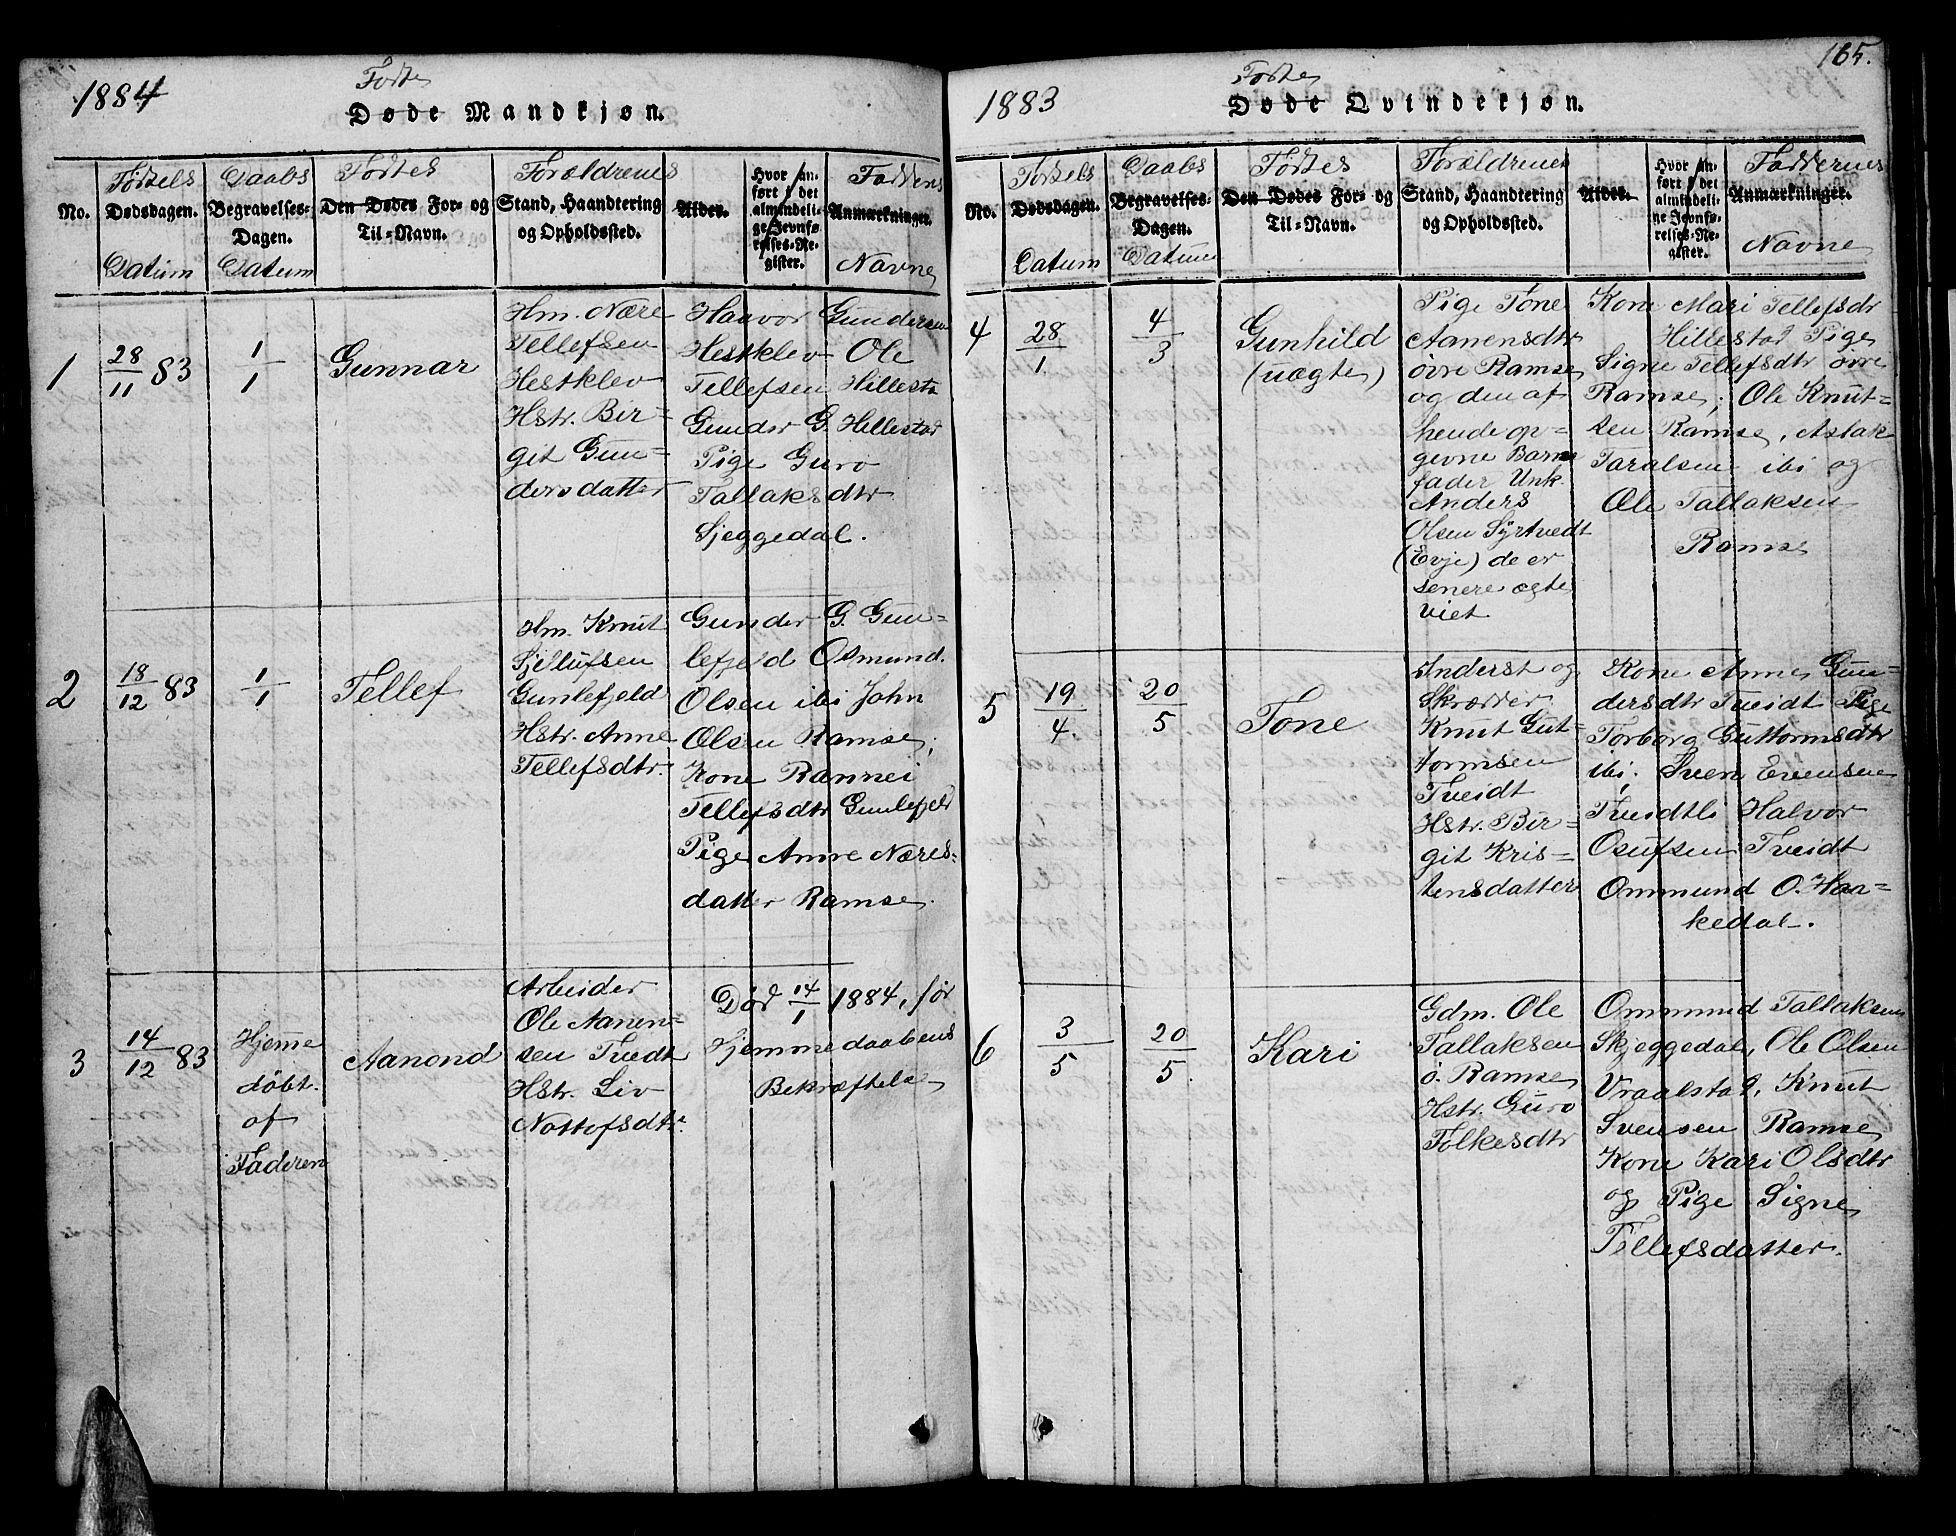 1884
Fødte
Døde Mandkjøn.
No.
Fødsels
Dødsdagen.
Datum
Daabs
Begravelses-
Dagen.
Datum
Fødtes
Den Dødes For- og
Til-Navn.
Forældrenes
Stand, Haandtering
og Opholdssted.
Alder.
Hvor an-
ført i det
almindeli-
ge Jevnfø-
relses-Re-
gister.
Faddernes
Anmærkninger.
Navne
1
28/11 83
1/1
Gunnar
Hm. Nære
Tellefsen
Hestklev
Hstr. Bir-
git Gun-
dersdatter
Haavor Gundersen
Hestklev Ole
Tellefsen Hillestd
Gunder G. Hillestad
Pige Guro
Tallaksdtr
Sjeggedal.
2
18/12 83
1/1
Tellef
Hm. Knut
Gunlefjeld
Hstr. Anne
Tellefsdtr.
Gunder G. Gun-
lefjeld Osmund
Olsen ibi John
Olsen Ramse,
Kone Rannei
Tellefsdtr Gunlefjeld
Pige Anne Næres-
datter Ramse.
3
14/12 83
Hjeme
døbt.
af
Faderen
Aanond
Arbeider
Ole Aanen-
sen Tvedt
Hstr. Liv
Nottofsdtr.
Død 14/1 1884, før
Hjemmedaabens
Bekræftelse
165.
1883
Fødte
Døde Qvindekjøn.
No.
Fødsels
Dødsdagen.
Datum
Daabs
Begravelses-
Dagen.
Datum
Fødtes
Den Dødes For- og
Til-Navn.
Forældrenes
Stand, Haandtering
og Opholdssted.
Alder.
Hvor an-
ført i det
almindeli-
ge Jevnfø-
relses-Re-
gister.
Faddernes
Anmærkninger.
Navne
4
28/1
4/3
Gunhild
(uægte)
Pige Tone
Aanensdtr
øvre Ramse
og den af
hende op-
gevne Barne
fader Unk.
Anders
Olsen Syrtvedt
(Evje) de er
senere ægte
viet
Kone Mari Tellefsdtr
Hillestad Pige
Signe Tellefsdtr øvre
Ramse, Ole Knut-
sen Ramse, Aslak
Taralsen ibi og
Ole Tallaksen
Ramse
5
19/4.
20/5
Tone
Inderst og
Skrædder
Knut Gut-
tormsen
Tveidt
Hstr. Bir-
git Kris-
tensdatter
Kone Anne Gun-
dersdtr Tveidt Pige
Torborg Guttormsdtr
ibi, Sven Evensen
Tveidtli Halvor
Osufsen Tveidt
Ommund O. Haa-
kedal.
6
3/5
20/5.
Kari
Gdm. Ole
Tallaksen
ø. Ramse
Hstr. Guro
Folkesdtr
Ommund Tallaksen
Skjeggedal, Ole Olsen
Vraalstad, Knut
Svensen Ramse
Kone Kari Olsdtr
og Pige Signe
Tellefsdatter.